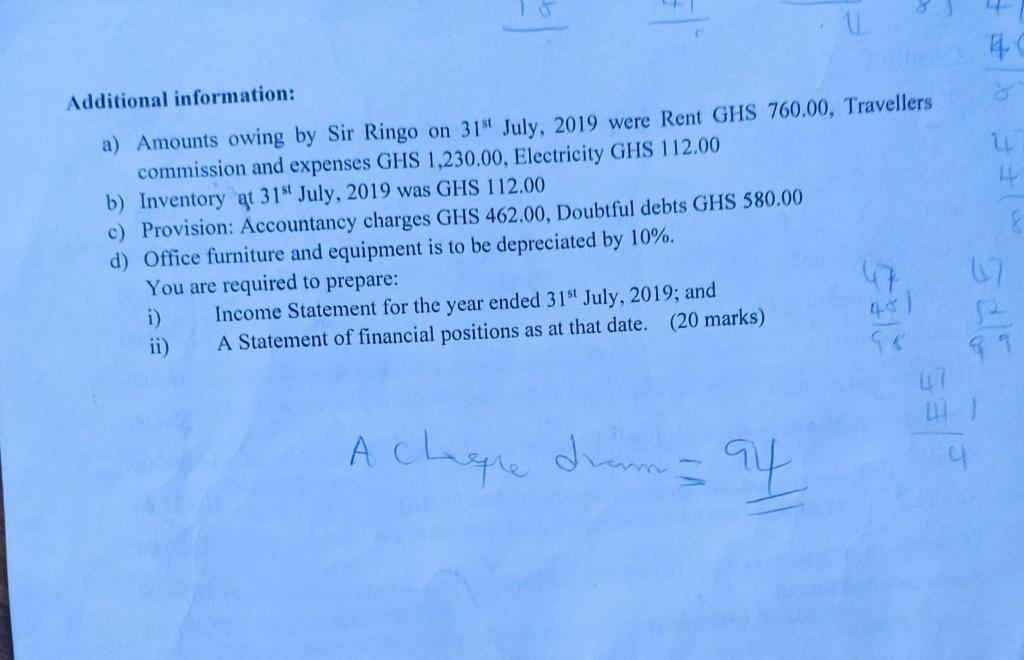 Additional information:
a) Amounts owing by Sir Ringo on 31st July, 2019 were Rent GHS 760.00, Travellers
commission and expenses GHS 1,230.00, Electricity GHS 112.00
b) Inventory at 31st July, 2019 was GHS 112.00
c) Provision: Accountancy charges GHS 462.00, Doubtful debts GHS 580.00
d) Office furniture and equipment is to be depreciated by 10%.
You are required to prepare:
i) Income Statement for the year ended 31st July, 2019; and
ii) A Statement of financial positions as at that date. (20 marks)
47 47
52
99
47
4
A = 94